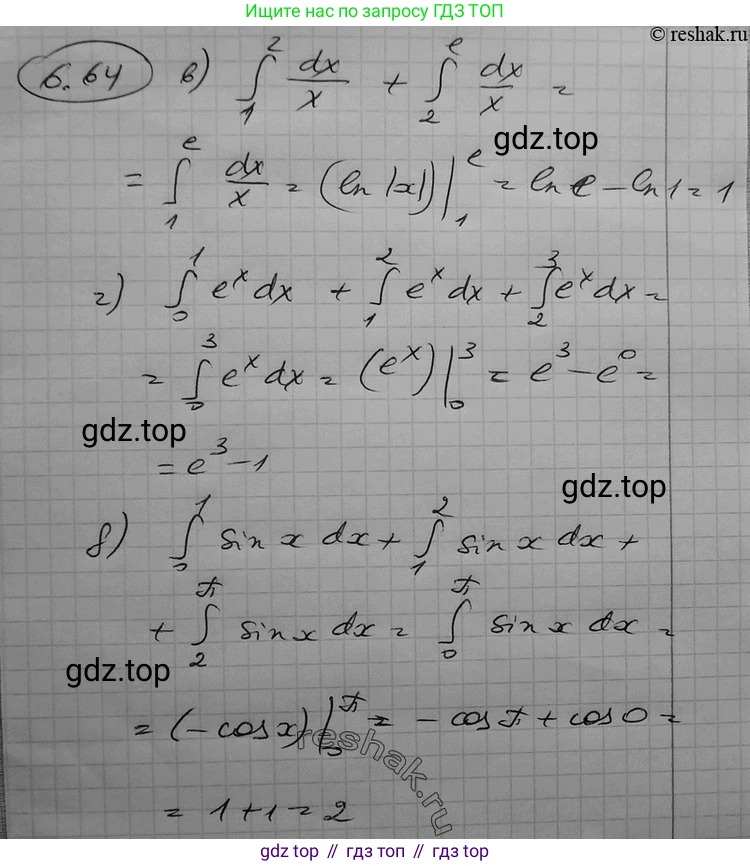 Ищите нас по запросу ГДЗ ТОП
© reshak.ru
6.64 в) ∫₁² dx/x + ∫₂ᵉ dx/x =
gdz.top
= ∫₁ᵉ dx/x = (ln |x|)|₁ᵉ = ln e − ln 1 = 1
г) ∫₀¹ eˣ dx + ∫₁² eˣ dx + ∫₂³ eˣ dx =
= ∫₀³ eˣ dx = (eˣ)|₀³ = e³ − e⁰ =
gdz.top
= e³ − 1
gdz.top
д) ∫₀¹ sin x dx + ∫₁² sin x dx +
+ ∫₂^π sin x dx = ∫₀^π sin x dx =
gdz.top
= (− cos x)|₀^π = − cos π + cos 0 =
reshak.ru
= 1 + 1 = 2
gdz.top // gdz.top // gdz.top // gdz.top